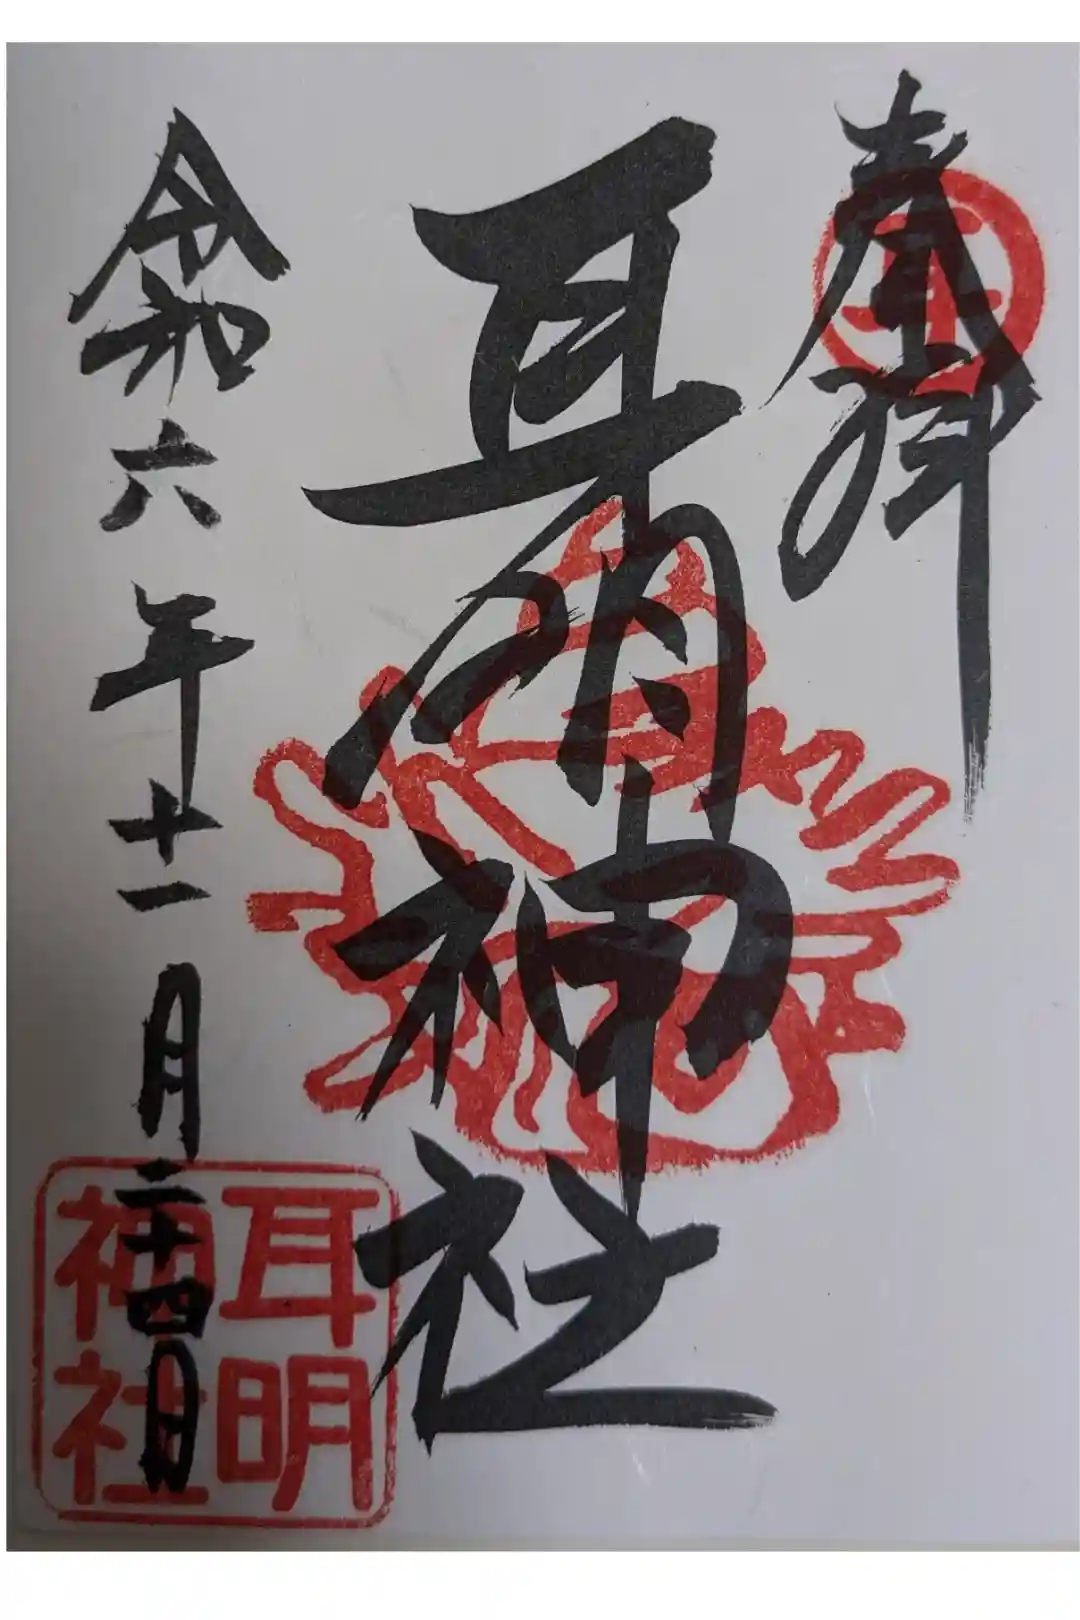 奉拝
耳明神社
令和六年十一月二十四日
耳明
神社